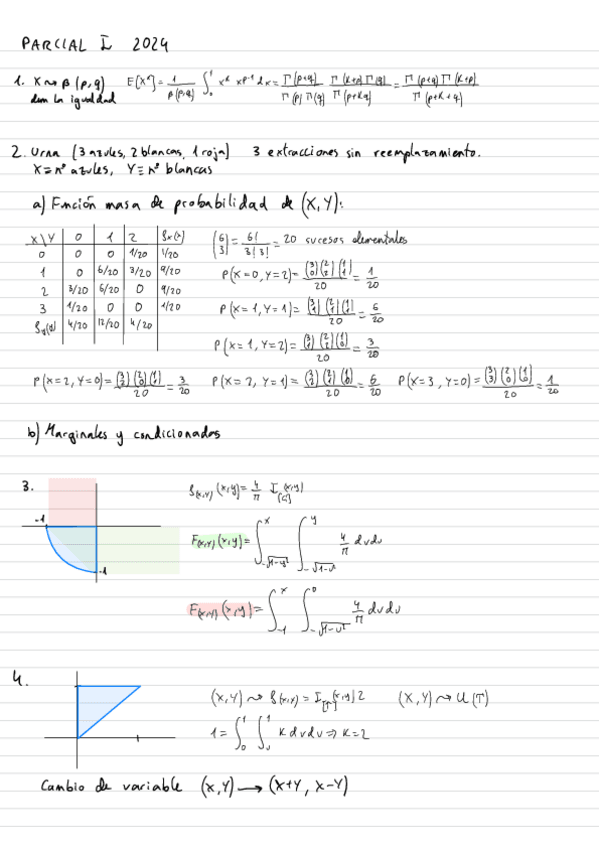 PARCIAL I 2024
1. X ~ β(p,q) E[X^k] = 1/β(p,q) ∫_0^1 x^k x^{p-1} dx = Γ(p+q)/Γ(p)Γ(q) Γ(k+p)Γ(q)/Γ(p+kq) = Γ(p+q)Γ(k+p)/Γ(p+k+q)
dem la igualdad
2. Urna (3 azules, 2 blancas, 1 roja) 3 extracciones sin reemplazamiento.
X ≡ nº azules, Y ≡ nº blancas
a) Función masa de probabilidad de (X,Y):
X\Y 0 1 2 f_X(x)
0 0 0 1/20 1/20
1 0 6/20 3/20 9/20
2 3/20 6/20 0 9/20
3 1/20 0 0 1/20
f_Y(y) 4/20 12/20 4/20
(6 3) = 6!/3!3! = 20 sucesos elementales
P(X=0,Y=2) = (3 0)(2 2)(1 1)/20 = 1/20
P(X=1,Y=1) = (3 1)(2 1)(1 1)/20 = 6/20
P(X=1,Y=2) = (3 1)(2 2)(1 0)/20 = 3/20
P(X=2,Y=0) = (3 2)(2 0)(1 1)/20 = 3/20 P(X=2,Y=1) = (3 2)(2 1)(1 0)/20 = 6/20 P(X=3,Y=0) = (3 3)(2 0)(1 0)/20 = 1/20
b) Marginales y condicionados
3.
-1
-1
f_(X,Y)(x,y) = 4/π I_[C](x,y)
F_(X,Y)(x,y) = ∫_{-√1-y²}^x ∫_{-√1-u²}^y 4/π dvdu
F_(X,Y)(x,y) = ∫_{-1}^x ∫_{-√1-u²}^0 4/π dvdu
4.
(X,Y) ~ f_(X,Y) = I_[T](x,y) 2 (X,Y) ~ U(T)
1 = ∫_0^1 ∫_u^1 k dvdu ⇒ k=2
Cambio de variable (X,Y) → (X+Y, X-Y)